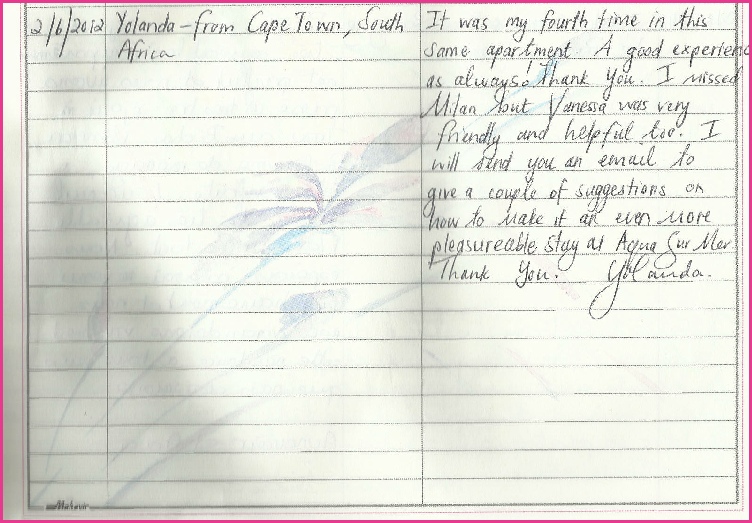 2/6/2012 Yolanda - from Cape Town, South
Africa
It was my fourth time in this
same apartment. A good experienc
as always! Thank You. I missed
Milan but Vanessa was very
friendly and helpful too. I
will send you an email to
give a couple of suggestions on
how to make it an even more
pleasureable stay at Aqua Sur Mer.
Thank You. Yolanda.